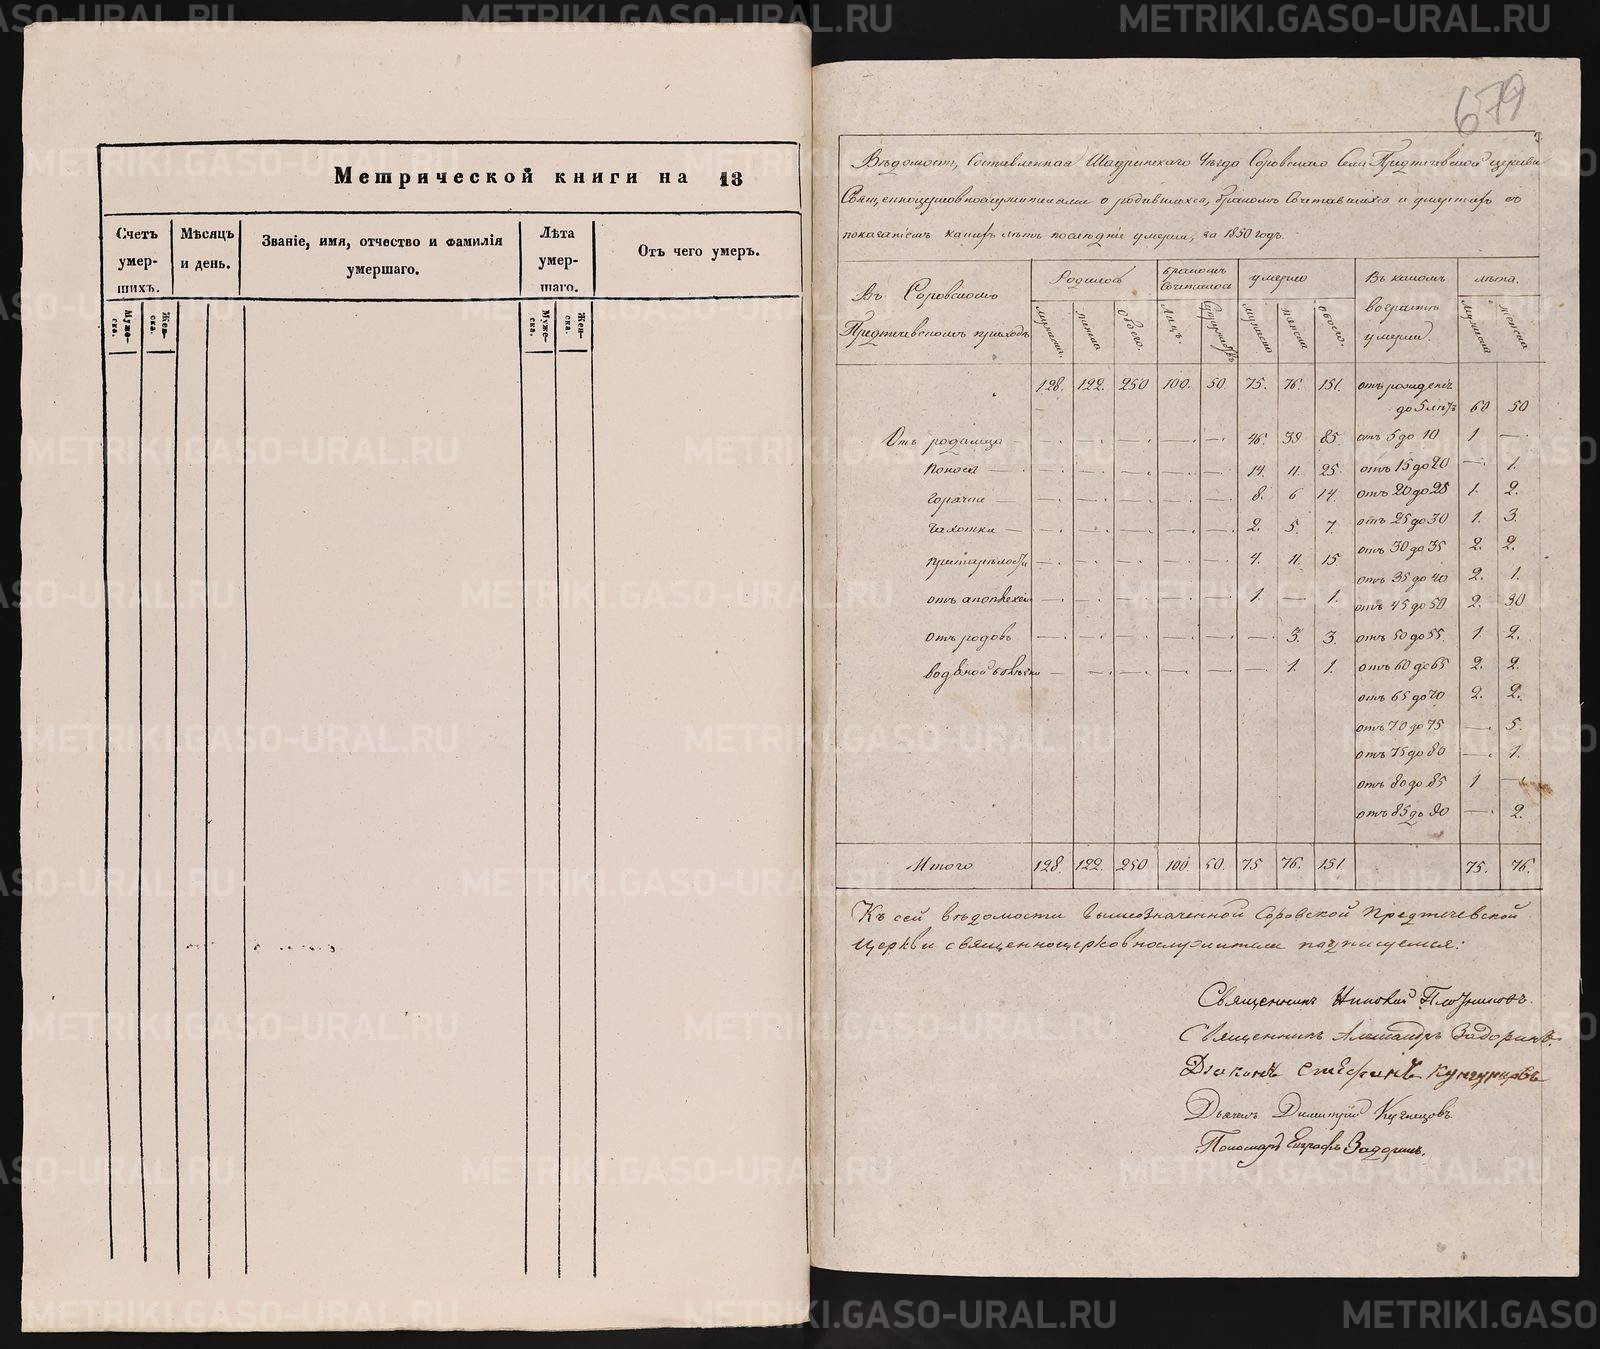 Метрической книги на 13
Счетъ умер-шихъ.
Мѣсяцъ и день.
Званіе, имя, отчество и фамилія умершаго.
Лѣта умер-шаго.
Отъ чего умеръ.
Муже-ска.
Жен-ска.
Муже-ска.
Жен-ска.
679
Вѣдомость, Составленная Шадринскаго Уѣзда Соровскаго Села Предтечевской церкви
Священноцерковнослужителями о родившихся, бракомъ Сочетавшихся и умершихъ съ
показаніемъ какихъ лѣтъ послѣдніе умерли, за 1850 годъ.
Въ Соровскомъ Предтечевскомъ приходѣ
Родилось
бракомъ Сочеталось
умерло
Въ какомъ возрастѣ умерли.
лѣта.
мужеска.
женска
обоего.
Лицъ.
Супружествъ
мужеска
женска
обоего.
мужеска
женска
128. 122. 250 100. 50. 75. 76. 151. отъ рожденія
до 5 лѣтъ 60 50
Отъ родимца — — — — — 46. 39 85. отъ 5 до 10 1 —
поноса — — — — — 14. 11. 25. отъ 15 до 20 — 1.
горячки — — — — — 8. 6 14. отъ 20 до 25 1. 2.
чахотки — — — — — 2. 5. 7. отъ 25 до 30 1. 3.
престарѣлости — — — — — 4. 11. 15 отъ 30 до 35 2. 2.
отъ 35 до 40 2. 1.
отъ апоплексіи — — — — — 1. — 1. отъ 45 до 50 2.
отъ родовъ — — — — — — 3. 3. отъ 50 до 55. 1. 2.
водяной болѣзни — — — — — — 1. 1. отъ 60 до 65 2. 2.
отъ 65 до 70 2. 2.
отъ 70 до 75 — 5.
отъ 75 до 80 — 1.
отъ 80 до 85 1 —
отъ 85 до 90 — 2.
Итого 128. 122. 250 100. 50. 75 76. 151. 75. 76.
Къ сей вѣдомости вышеозначенной Соровской Предтечевской
Церкви священноцерковнослужители подписуемся:
Священникъ Николай Плотниковъ.
Священникъ Александръ Задоринъ.
Діаконъ Стефанъ Кунгурцовъ
Дьячекъ Димитрій Кузнецовъ.
Пономарь Евграфъ Задоринъ.
METRIKI.GASO-URAL.RU